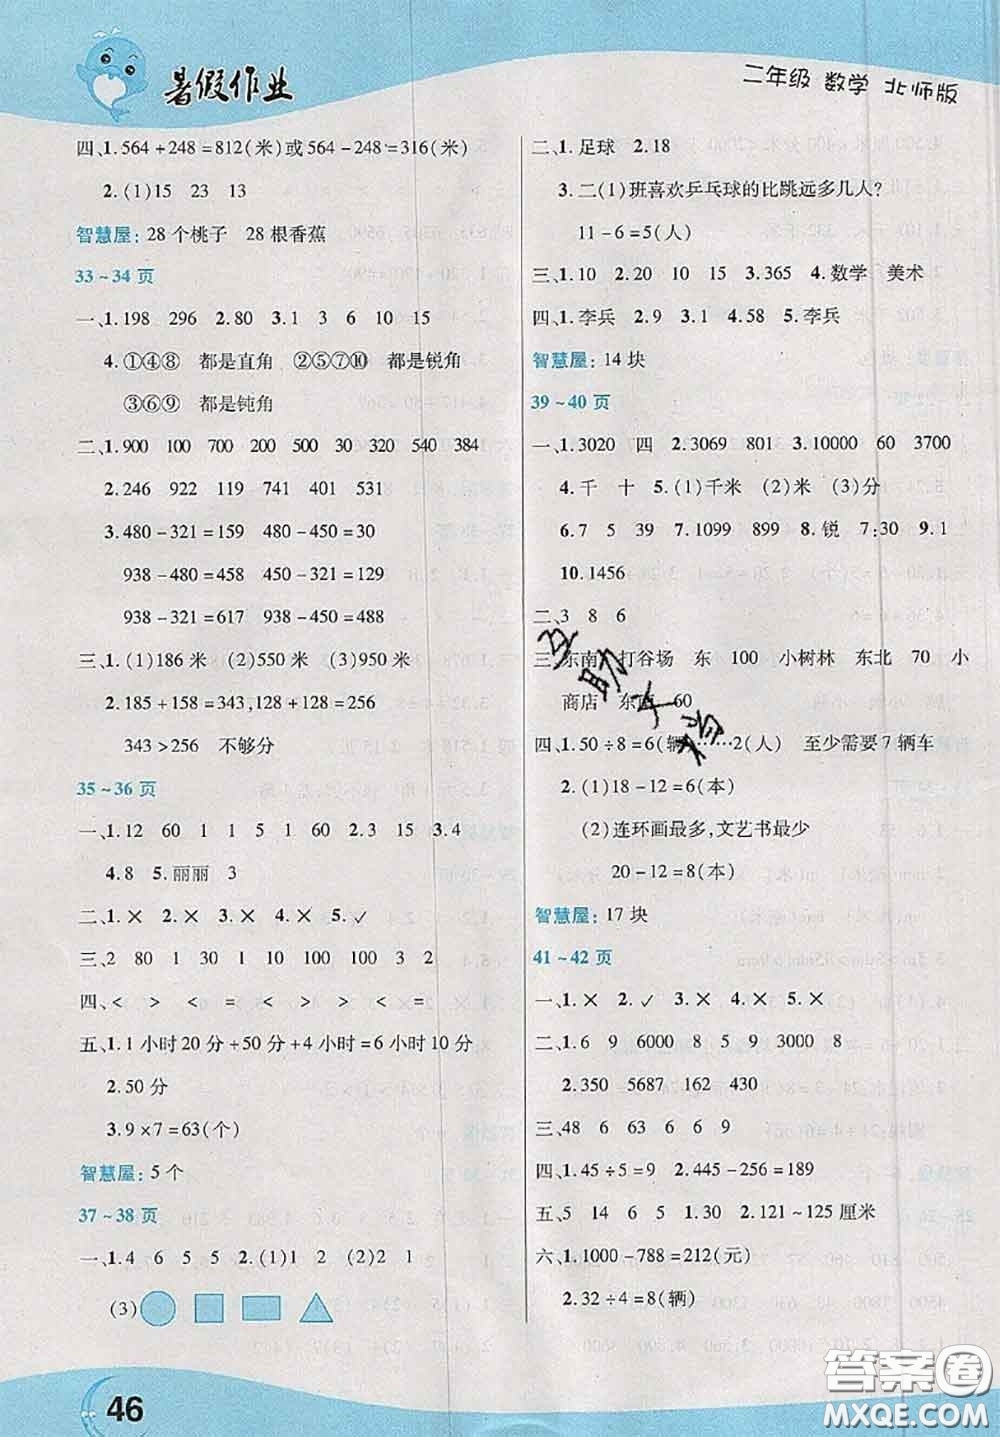 暑假作业
二年级 数学 北师版
四、1.564+248=812(米)或564-248=316(米)
2.(1)15 23 13
智慧屋:28个桃子 28根香蕉
33~34页
一、1.198 296 2.80 3.1 3 6 10 15
4.①④⑧ 都是直角 ②⑤⑦⑩ 都是锐角
③⑥⑨ 都是钝角
二、1.900 100 700 200 500 30 320 540 384
2.246 922 119 741 401 531
3.480-321=159 480-450=30
938-480=458 450-321=129
938-321=617 938-450=488
三、1.(1)186米 (2)550米 (3)950米
2.185+158=343,128+128=256
343>256 不够分
35~36页
一、1.12 60 1 1 5 1 60 2.3 15 3.4
4.8 5.丽丽 3
二、1.× 2.× 3.× 4.× 5.✓
三、2 80 1 30 1 100 100 100 3 2
四、< > < = < > > < =
五、1.1小时20分+50分+4小时=6小时10分
2.50分
3.9×7=63(个)
智慧屋:5个
37~38页
一、1.4 6 5 5 2.(1)1 2 (2)2 1
(3)
二、1.足球 2.18
3.二(1)班喜欢乒乓球的比跳远多几人?
11-6=5(人)
三、1.10 2.20 10 15 3.365 4.数学 美术
四、1.李兵 2.9 3.1 4.58 5.李兵
智慧屋:14块
39~40页
一、1.3020 四 2.3069 801 3.10000 60 3700
4.千 十 5.(1)千米 (2)米 (3)分
6.7 5 39 7.1099 899 8.锐 7:30 9.1
10.1456
二、3 8 6
三、东南 打谷场 东 100 小树林 东北 70 小
商店 东南 60
四、1.50÷8=6(辆)……2(人) 至少需要7辆车
2.(1)18-12=6(本)
(2)连环画最多,文艺书最少
20-12=8(本)
智慧屋:17块
41~42页
一、1.× 2.✓ 3.× 4.× 5.×
二、1.9 6 6000 8 5 9 3000 8
2.350 5687 162 430
三、48 6 63 6 6 7 9
四、1.45÷5=9 2.445-256=189
五、5 14 6 5 1.30 2.121~125厘米
六、1.1000-788=212(元)
2.32÷4=8(辆)
互助文档
46
答案圈
MXQE.COM